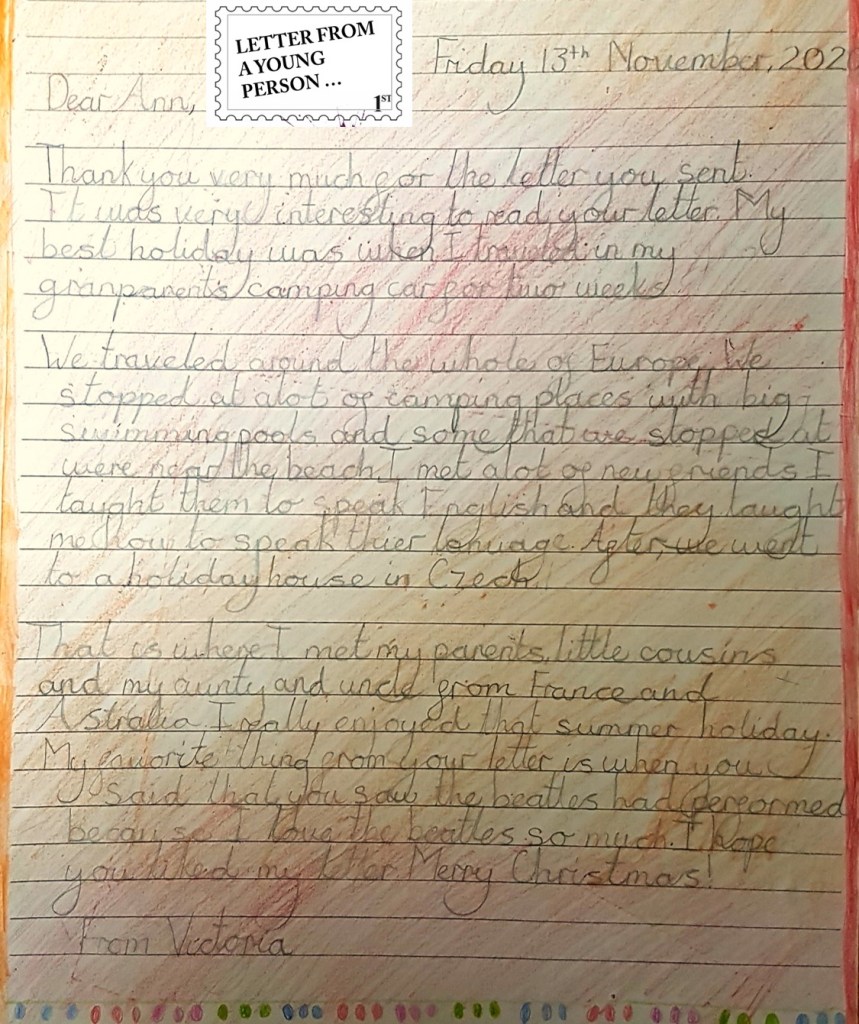 LETTER FROM
A YOUNG
PERSON ...
1ST
Friday 13th November, 202
Dear Ann,
Thank you very much for the letter you sent.
It was very interesting to read your letter. My
best holiday was when I traveled in my
granparent's camping car for two weeks
We traveled around the whole of Europe. We
stopped at alot of camping places with big
swimming pools and some that we stopped at
were near the beach. I met alot of new friends I
taught them to speak English and they taught
me how to speak thier lanuage. After, we went
to a holiday house in Czech.
That is where I met my parents, little cousins
and my aunty and uncle from France and
Astralia. I really enjoyed that summer holiday.
My favorite thing from your letter is when you
said that you saw the beatles had performed
because I love the beatles so much. I hope
you liked my letter. Merry Christmas!
From Victoria